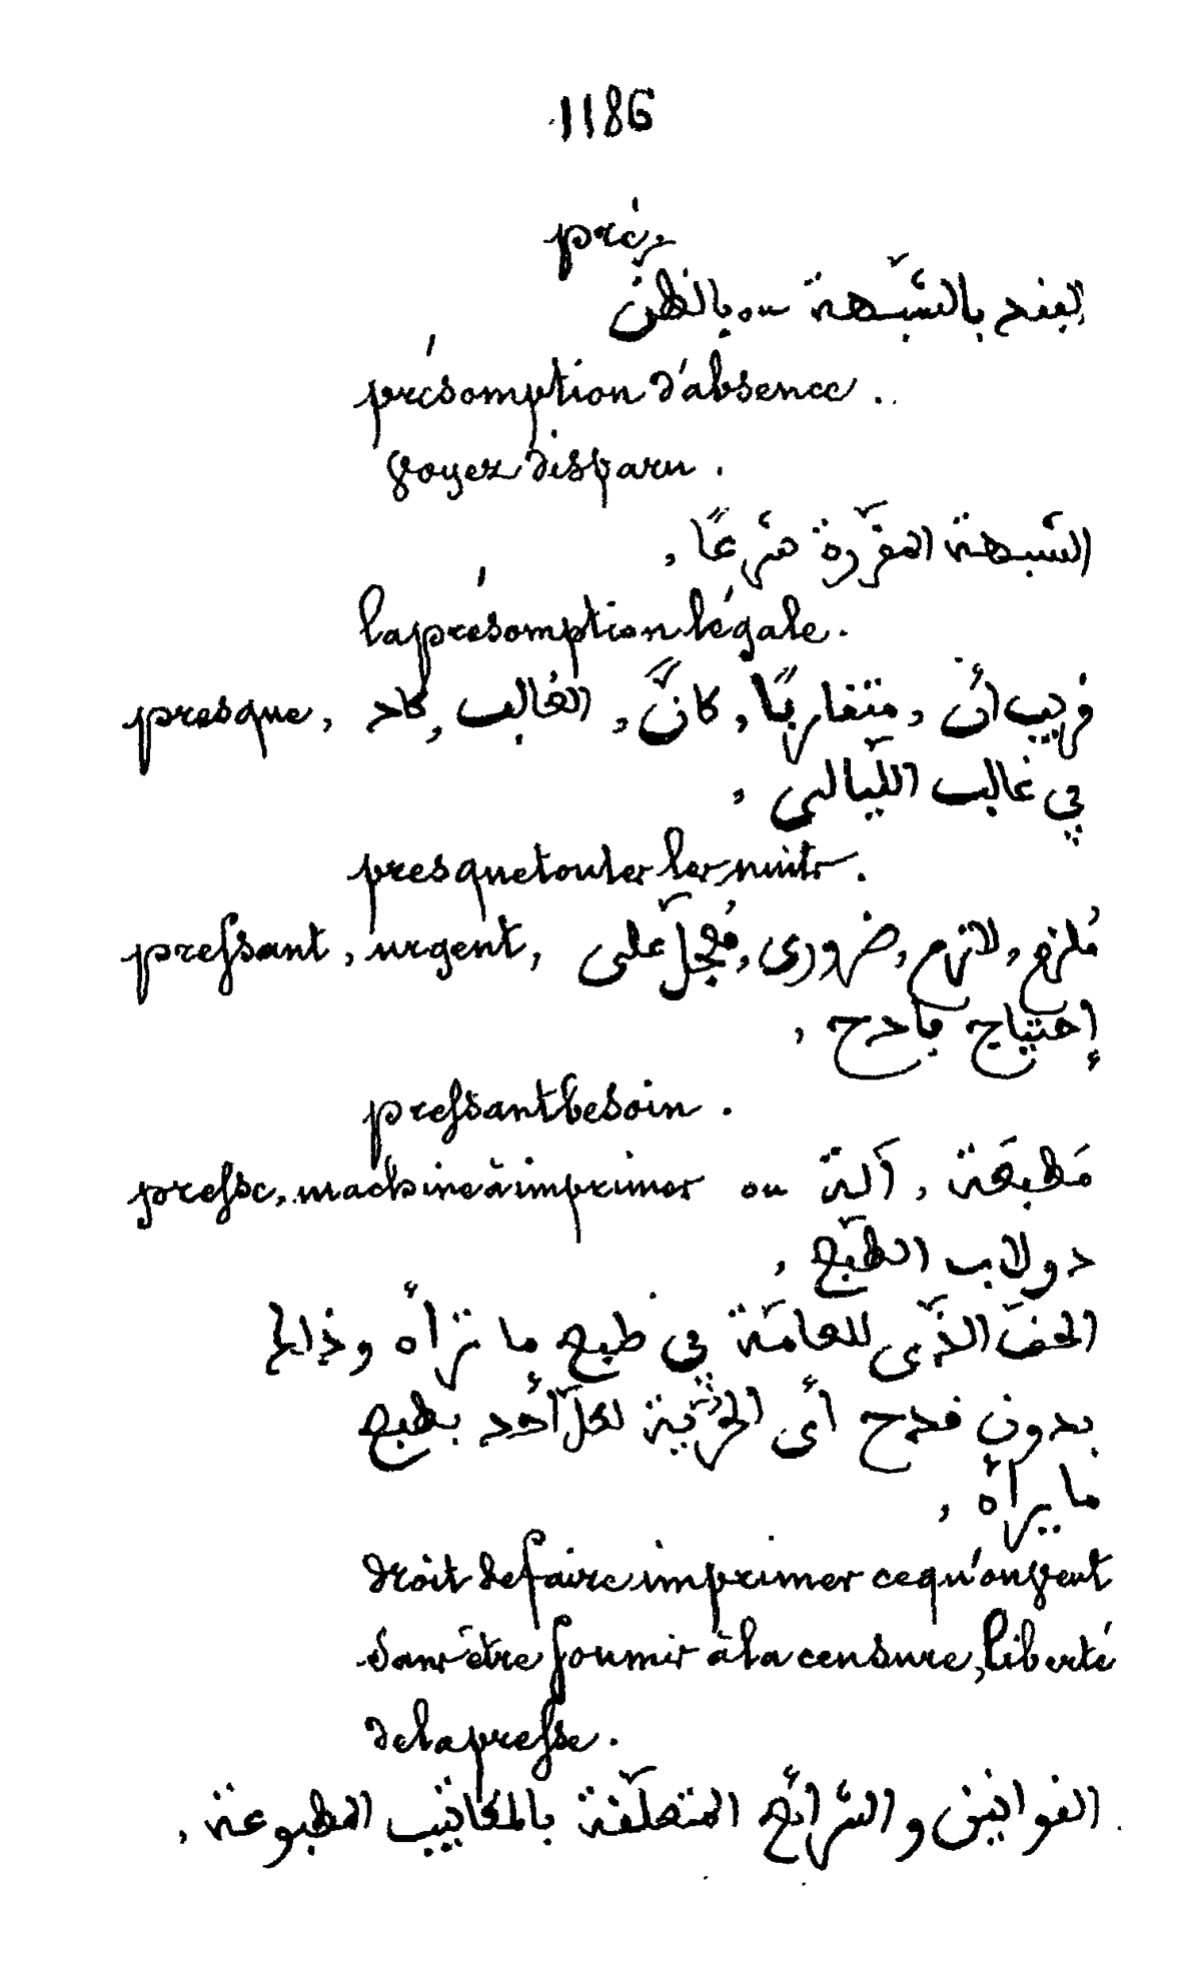 1186
pré.
الفقد بالشّبهة ou بالظنّ
présomption d'absence.
Voyez disparu.
الشّبهة المقرّرة شرعًا,
la présomption légale.
presque, قريب أن, متقاربًا, كانّ, الغالب, كاد
في غالب اللّيالى,
presque toutes les nuits.
pressant, urgent, مُلزم, لازم, ضرورى, مُعجّل على
إحتياج فادح,
pressant besoin.
presse, machine à imprimer مَطبعَة, آلة ou
دولاب الطّبع,
الحقّ الذّى للعامّة في طبع ما ترأه وذالك
بدون قدح أي الحرّيّة لكلّ أحد بطبع
ما يرأه,
droit de faire imprimer ce qu'on veut
sans être soumis à la censure, liberté
de la presse.
القوانين والشرائع المتعلّقة بالمكاتيب المطبوعة,